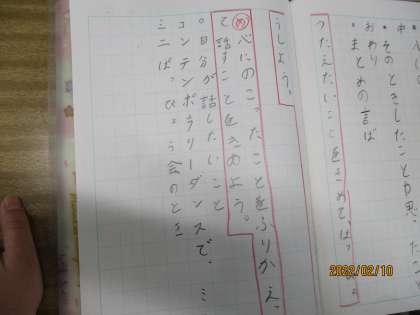 中
そのときしたことや思ったこと
・おわり
まとめの言ば
つたえたいことをきめて、はっぴょ
うしよう。
め 心にのこったことをふりかえっ
て話すことをきめよう。
○自分が話したいこと
コンテンポラリーダンスで、
ミニはっぴょう会のとき
2022/02/10